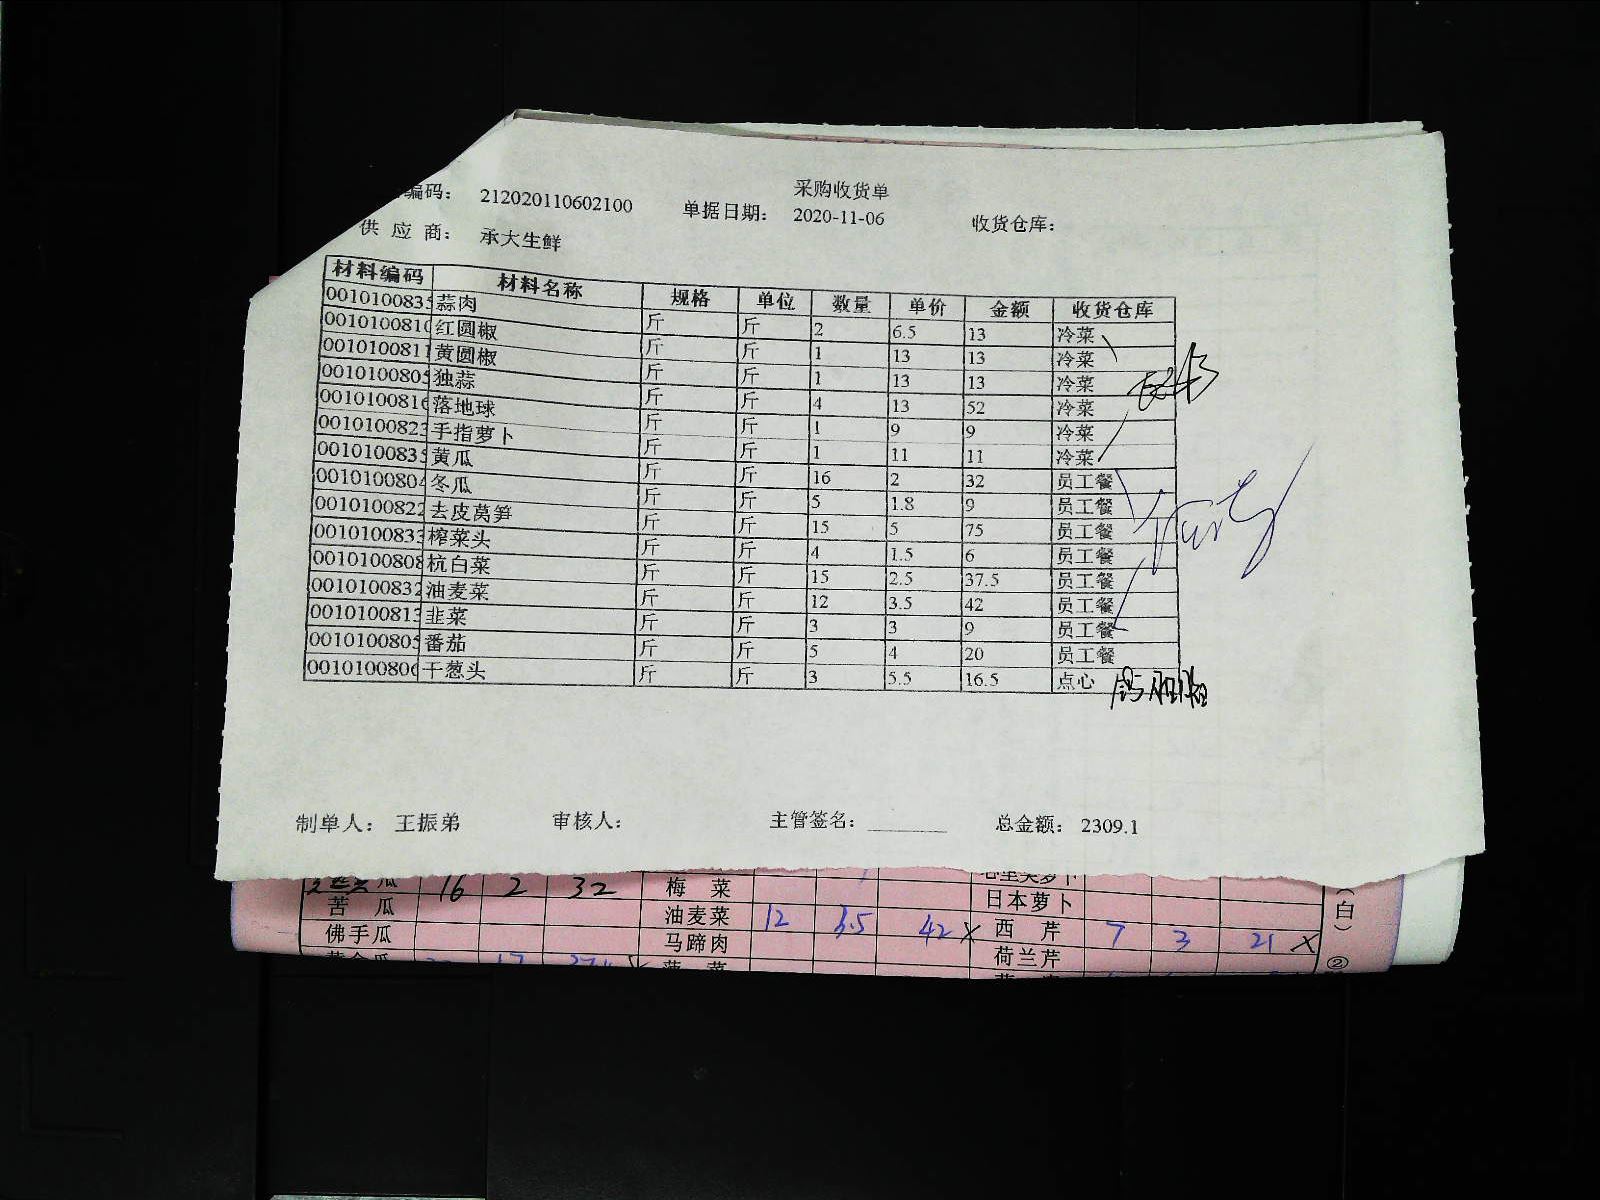 采购收货单
编码： 212020110602100 单据日期： 2020-11-06 收货仓库：
供 应 商： 承大生鲜
材料编码 材料名称 规格 单位 数量 单价 金额 收货仓库
001010083 蒜肉 斤 斤 2 6.5 13 冷菜
001010081 红圆椒 斤 斤 1 13 13 冷菜
0010100811 黄圆椒 斤 斤 1 13 13 冷菜
001010080 独蒜 斤 斤 4 13 52 冷菜
001010081 落地球 斤 斤 1 9 9 冷菜
001010082 手指萝卜 斤 斤 1 11 11 冷菜
001010083 黄瓜 斤 斤 16 2 32 员工餐
001010080 冬瓜 斤 斤 5 1.8 9 员工餐
001010082 去皮莴笋 斤 斤 15 5 75 员工餐
001010083 榨菜头 斤 斤 4 1.5 6 员工餐
001010080 杭白菜 斤 斤 15 2.5 37.5 员工餐
001010083 油麦菜 斤 斤 12 3.5 42 员工餐
001010081 韭菜 斤 斤 3 3 9 员工餐
001010080 番茄 斤 斤 5 4 20 员工餐
001010080 干葱头 斤 斤 3 5.5 16.5 点心
制单人： 王振弟 审核人： 主管签名： 总金额： 2309.1
瓜 16 2 32 梅 菜
苦 瓜 油麦菜 12 3.5 42 日本萝卜
佛手瓜 马蹄肉 西 芹 7 3 21
荷兰芹
（白）
②